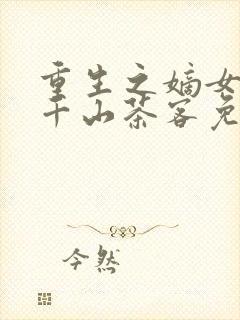 重生之嫡女
千山茶客免
今然